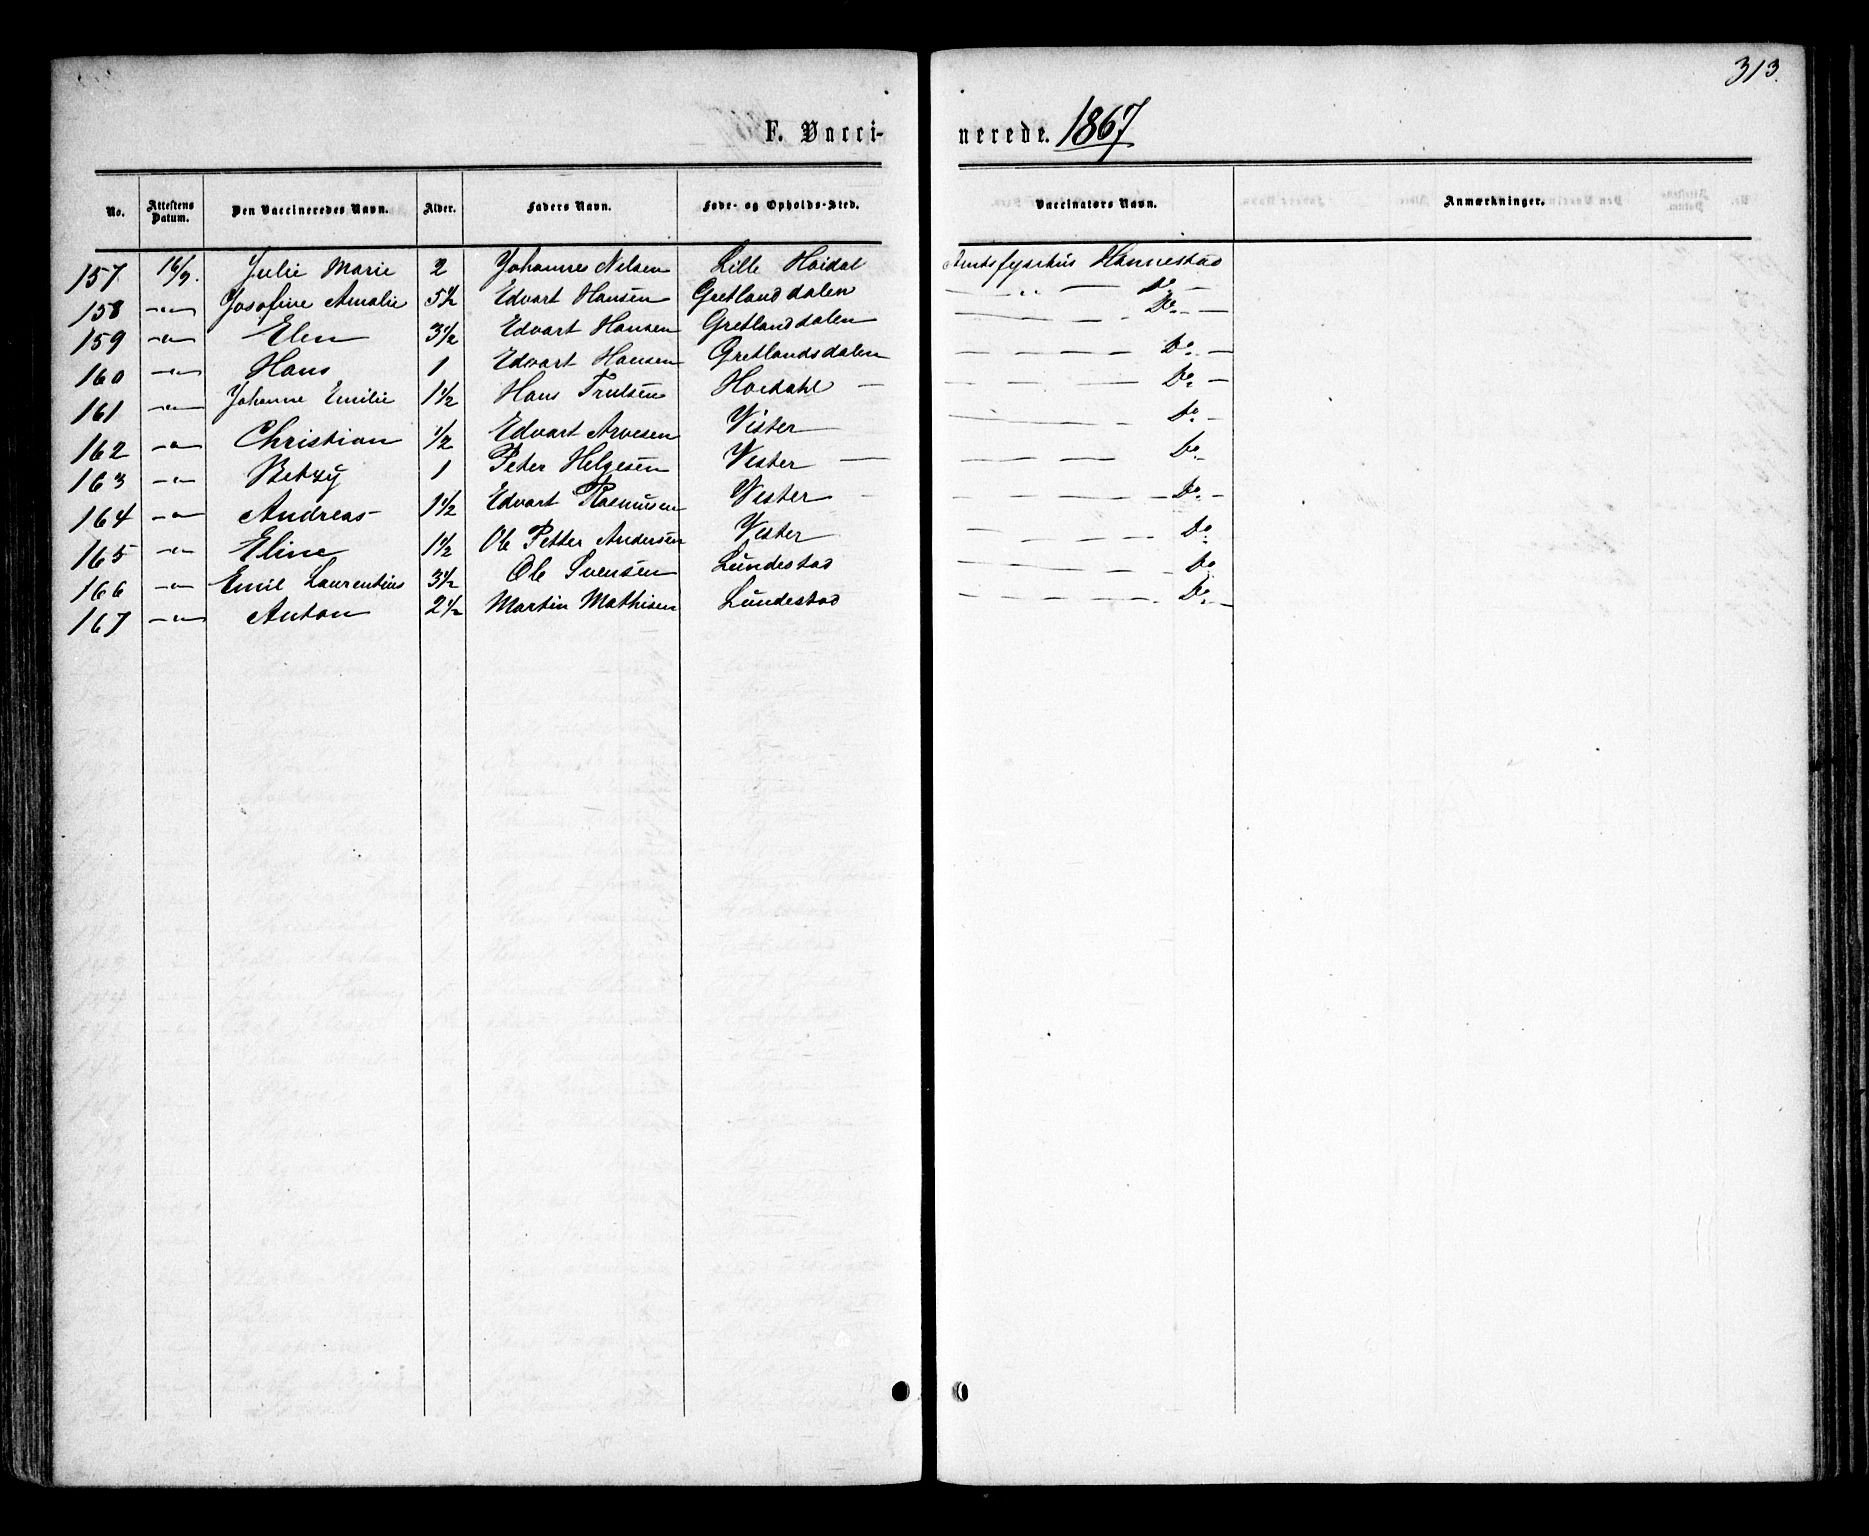 313.
F. Vacci- nerede. 1867
No. Attestens Datum. Den Vaccineredes Navn. Alder. Faders Navn. Føde- og Opholds-Sted. Vaccinatørs Navn. Anmærkninger.
157. 16/9. Julie Marie 2 Johannes Nilsen Lille Hoidal Amtsfysikus Hannestad
158 -"- Josofine Amalie 5 1/2 Edvart Hansen Gretlanddalen — " — Do —
159 -"- Elen 3 1/2 Edvart Hansen Gretlanddalen — — — Do. —
160 -"- Hans 1 Edvart Hansen Gretlandsdalen — — — — Do. —
161 -"- Johanne Emilie 1 1/2 Hans Trulsen Hoidahl — — — — Do. —
162 -"- Christian 1/2 Edvart Arvesen Vister — — — — Do. —
163 -"- Betzy 1 Peter Helgesen Vister — — — — — Do.
164 -"- Andreas 1 1/2 Edvart Rasmusen Vister — — — — Do. —
165 -"- Eline 1 1/2 Ole Petter Andersen Vister — — — — Do.
166 -"- Emil Laurentius 3 1/2 Ole Svensen Lundestad — — — — Do
167 -"- Anton 2 1/2 Martin Mathisen Lundestad — — — — Do. —